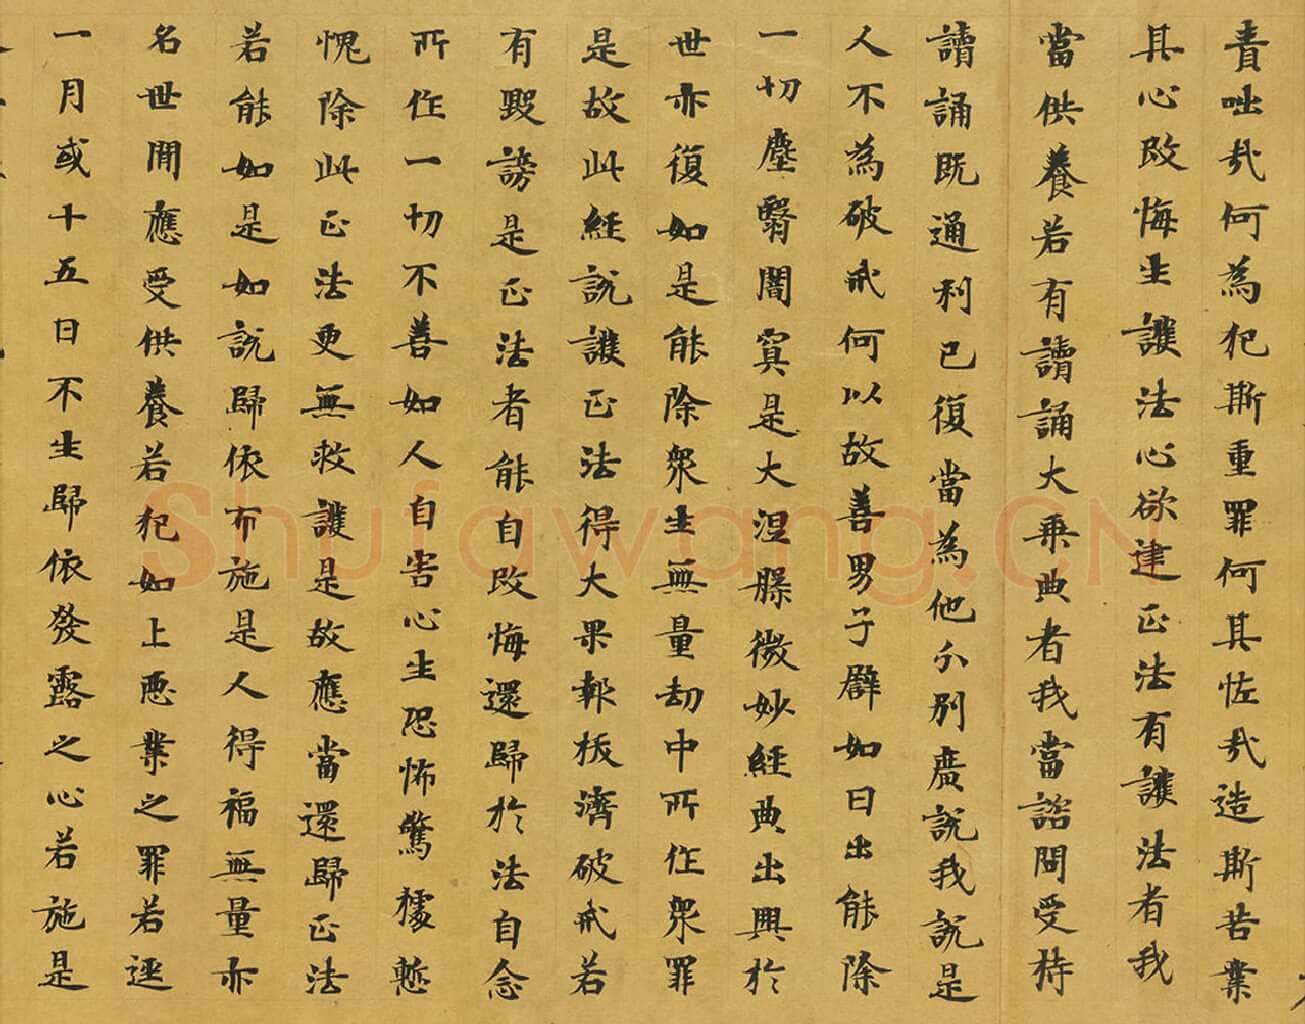 責咄哉何為犯斯重罪何其怪哉造斯苦業
其心改悔生護法心欲建正法有護法者我
當供養若有讀誦大乗典者我當諮問受持
讀誦既通利已復當為他分別廣說我說是
人不為破戒何以故善男子辟如日出能除
一切塵翳闇冥是大涅槃微妙經典出興於
世亦復如是能除衆生無量劫中所作衆罪
是故此經說護正法得大果報拔濟破戒若
有毀謗是正法者能自改悔還歸於法自念
所作一切不善如人自害心生恐怖驚懅慙
愧除此正法更無救護是故應當還歸正法
若能如是如說歸依布施是人得福無量亦
名世間應受供養若犯如上惡業之罪若逕
一月或十五日不生歸依發露之心若施是
Shufawang.CN